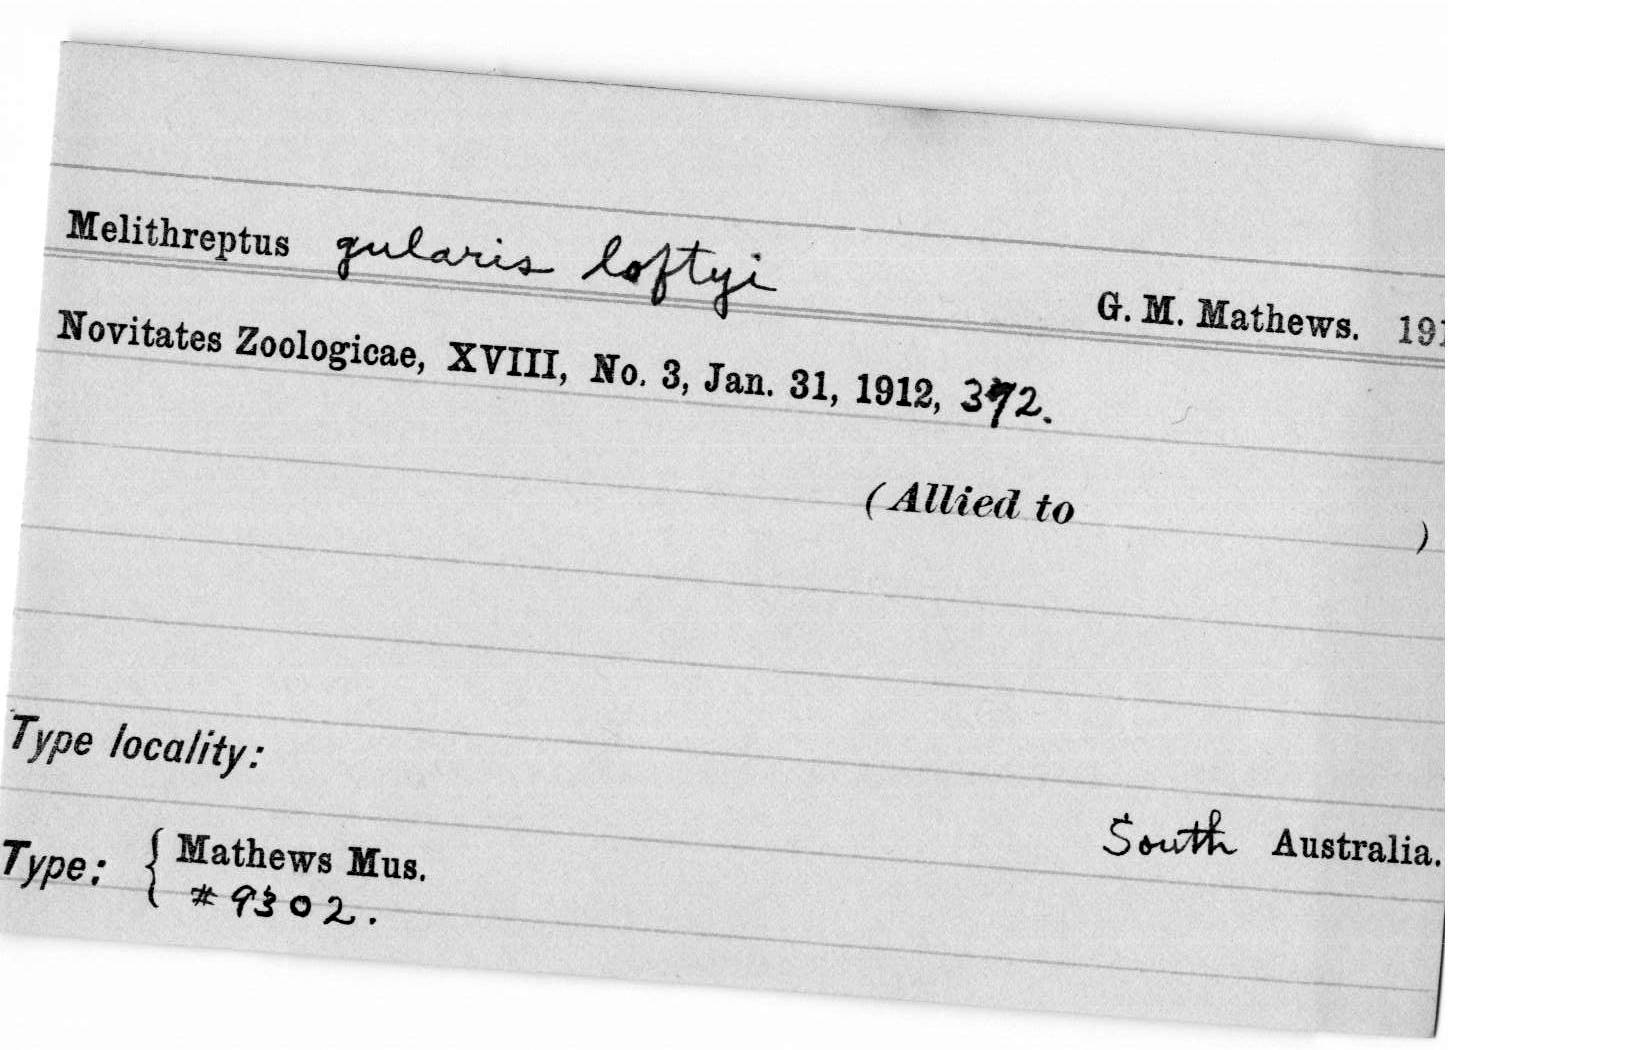 Melithreptus gularis loftyi
G. M. Mathews. 191
Novitates Zoologicae, XVIII, No. 3, Jan. 31, 1912, 372.
(Allied to )
Type locality:
South Australia.
Type: { Mathews Mus.
# 9302.